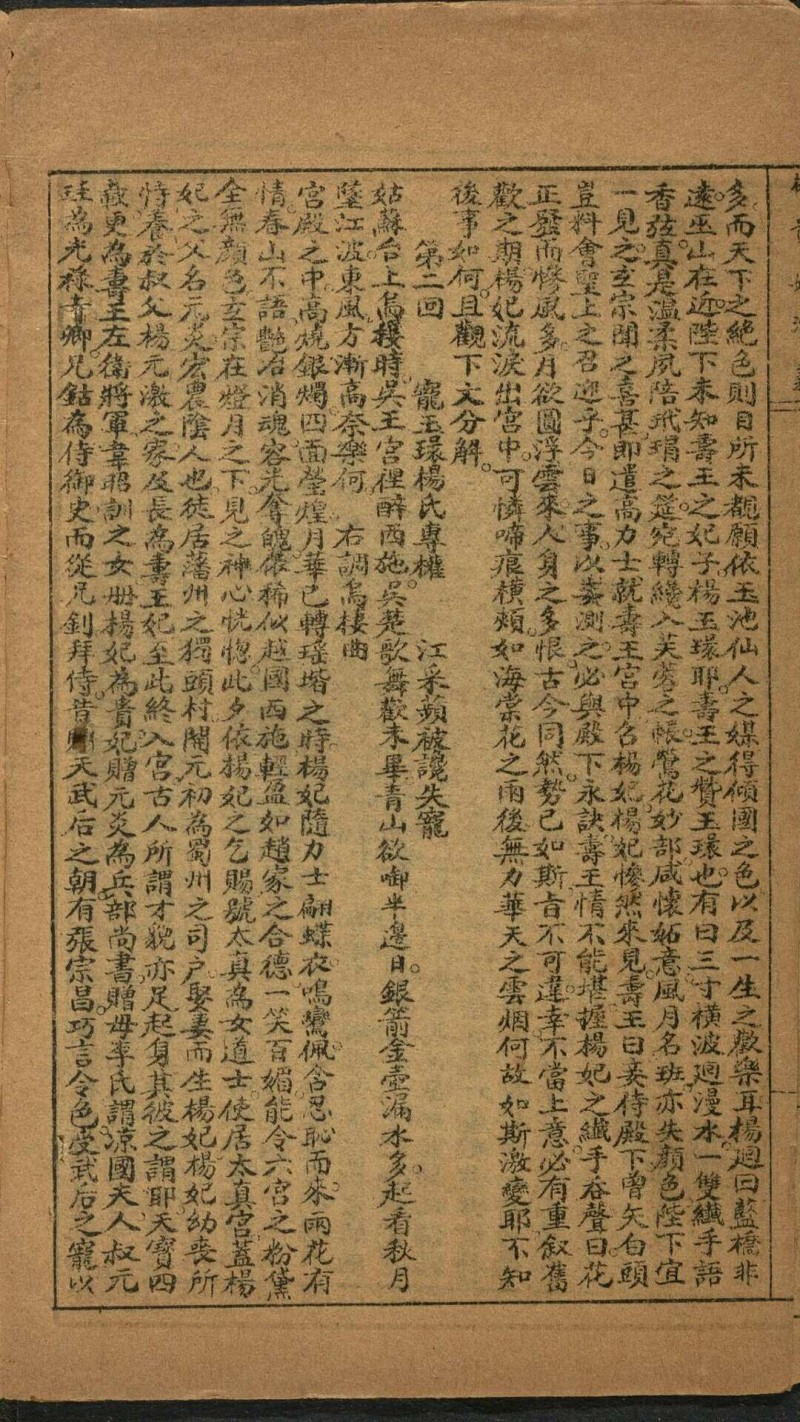 多而天下之絶色則目所未覩願依玉池仙人之媒得傾國之色以及一生之歡樂耳楊廻曰藍橋非
遠巫山在近陛下未知壽王之妃子楊玉環耶壽王之贊玉環也有曰三寸橫波廻漫水一雙纖手語
香弦真是溫柔夙陪玳瑁之筵宛轉纔入芙蓉之帳鶯花妙部咸懷妬意風月名班亦失顏色陛下宜
一見之玄宗聞之喜甚即遣高力士就壽王宮中召楊妃楊妃慘然來見壽王曰妾侍殿下嘗矢白頭
豈料會聖上之召迎乎今日之事以蒭測之必與殿下永訣壽王情不能堪握楊妃之纖手吞聲曰花
正發而慘風多月欲圓浮雲來人身之多恨古今同然勢已如斯旨不可違幸不當上意必有重叙舊
歡之期楊妃流淚出宮中可憐啼痕橫頰如海棠花之雨後無力華天之雲烟何故如斯激變耶不知
後事如何且觀下文分解
第二回 寵玉環楊氏專權 江采蘋被讒失寵
姑蘇台上烏棲時吳王宮裡醉西施吳楚歌舞歡未畢青山欲啣半邊日銀箭金壺漏水多起看秋月
墜江波東風方漸高奈樂何 右調烏棲曲
宮殿之中高燒銀燭四面瑩煌月華已轉瑤堦之時楊妃隨力士翩蝶衣鳴鸞佩含忍恥而來兩花有
情春山不語艶冶消魂容光奪魄依稀似越國西施輕盈如趙家之合德一笑百媚能令六宮之粉黛
全無顏色玄宗在燈月之下見之神心恍惚此夕依楊妃之乞賜號太真為女道士使居太真宮蓋楊
妃之父名元炎宏農陰人也徒居藩州之獨頭村開元初為蜀州之司户娶妻而生楊妃楊妃幼喪所
恃養於叔父楊元激之家及長為壽王妃至此終入宮古人所謂才貌亦足起身其彼之謂耶天寶四
載更為壽王左衛將軍韋昭訓之女册楊妃為貴妃贈元炎為兵部尚書贈母李氏謂凉國夫人叔元
珪為光祿青卿兄銛為侍御史而從兄釗拜侍昔 天武后之朝有張宗昌巧言令色受武后之寵以